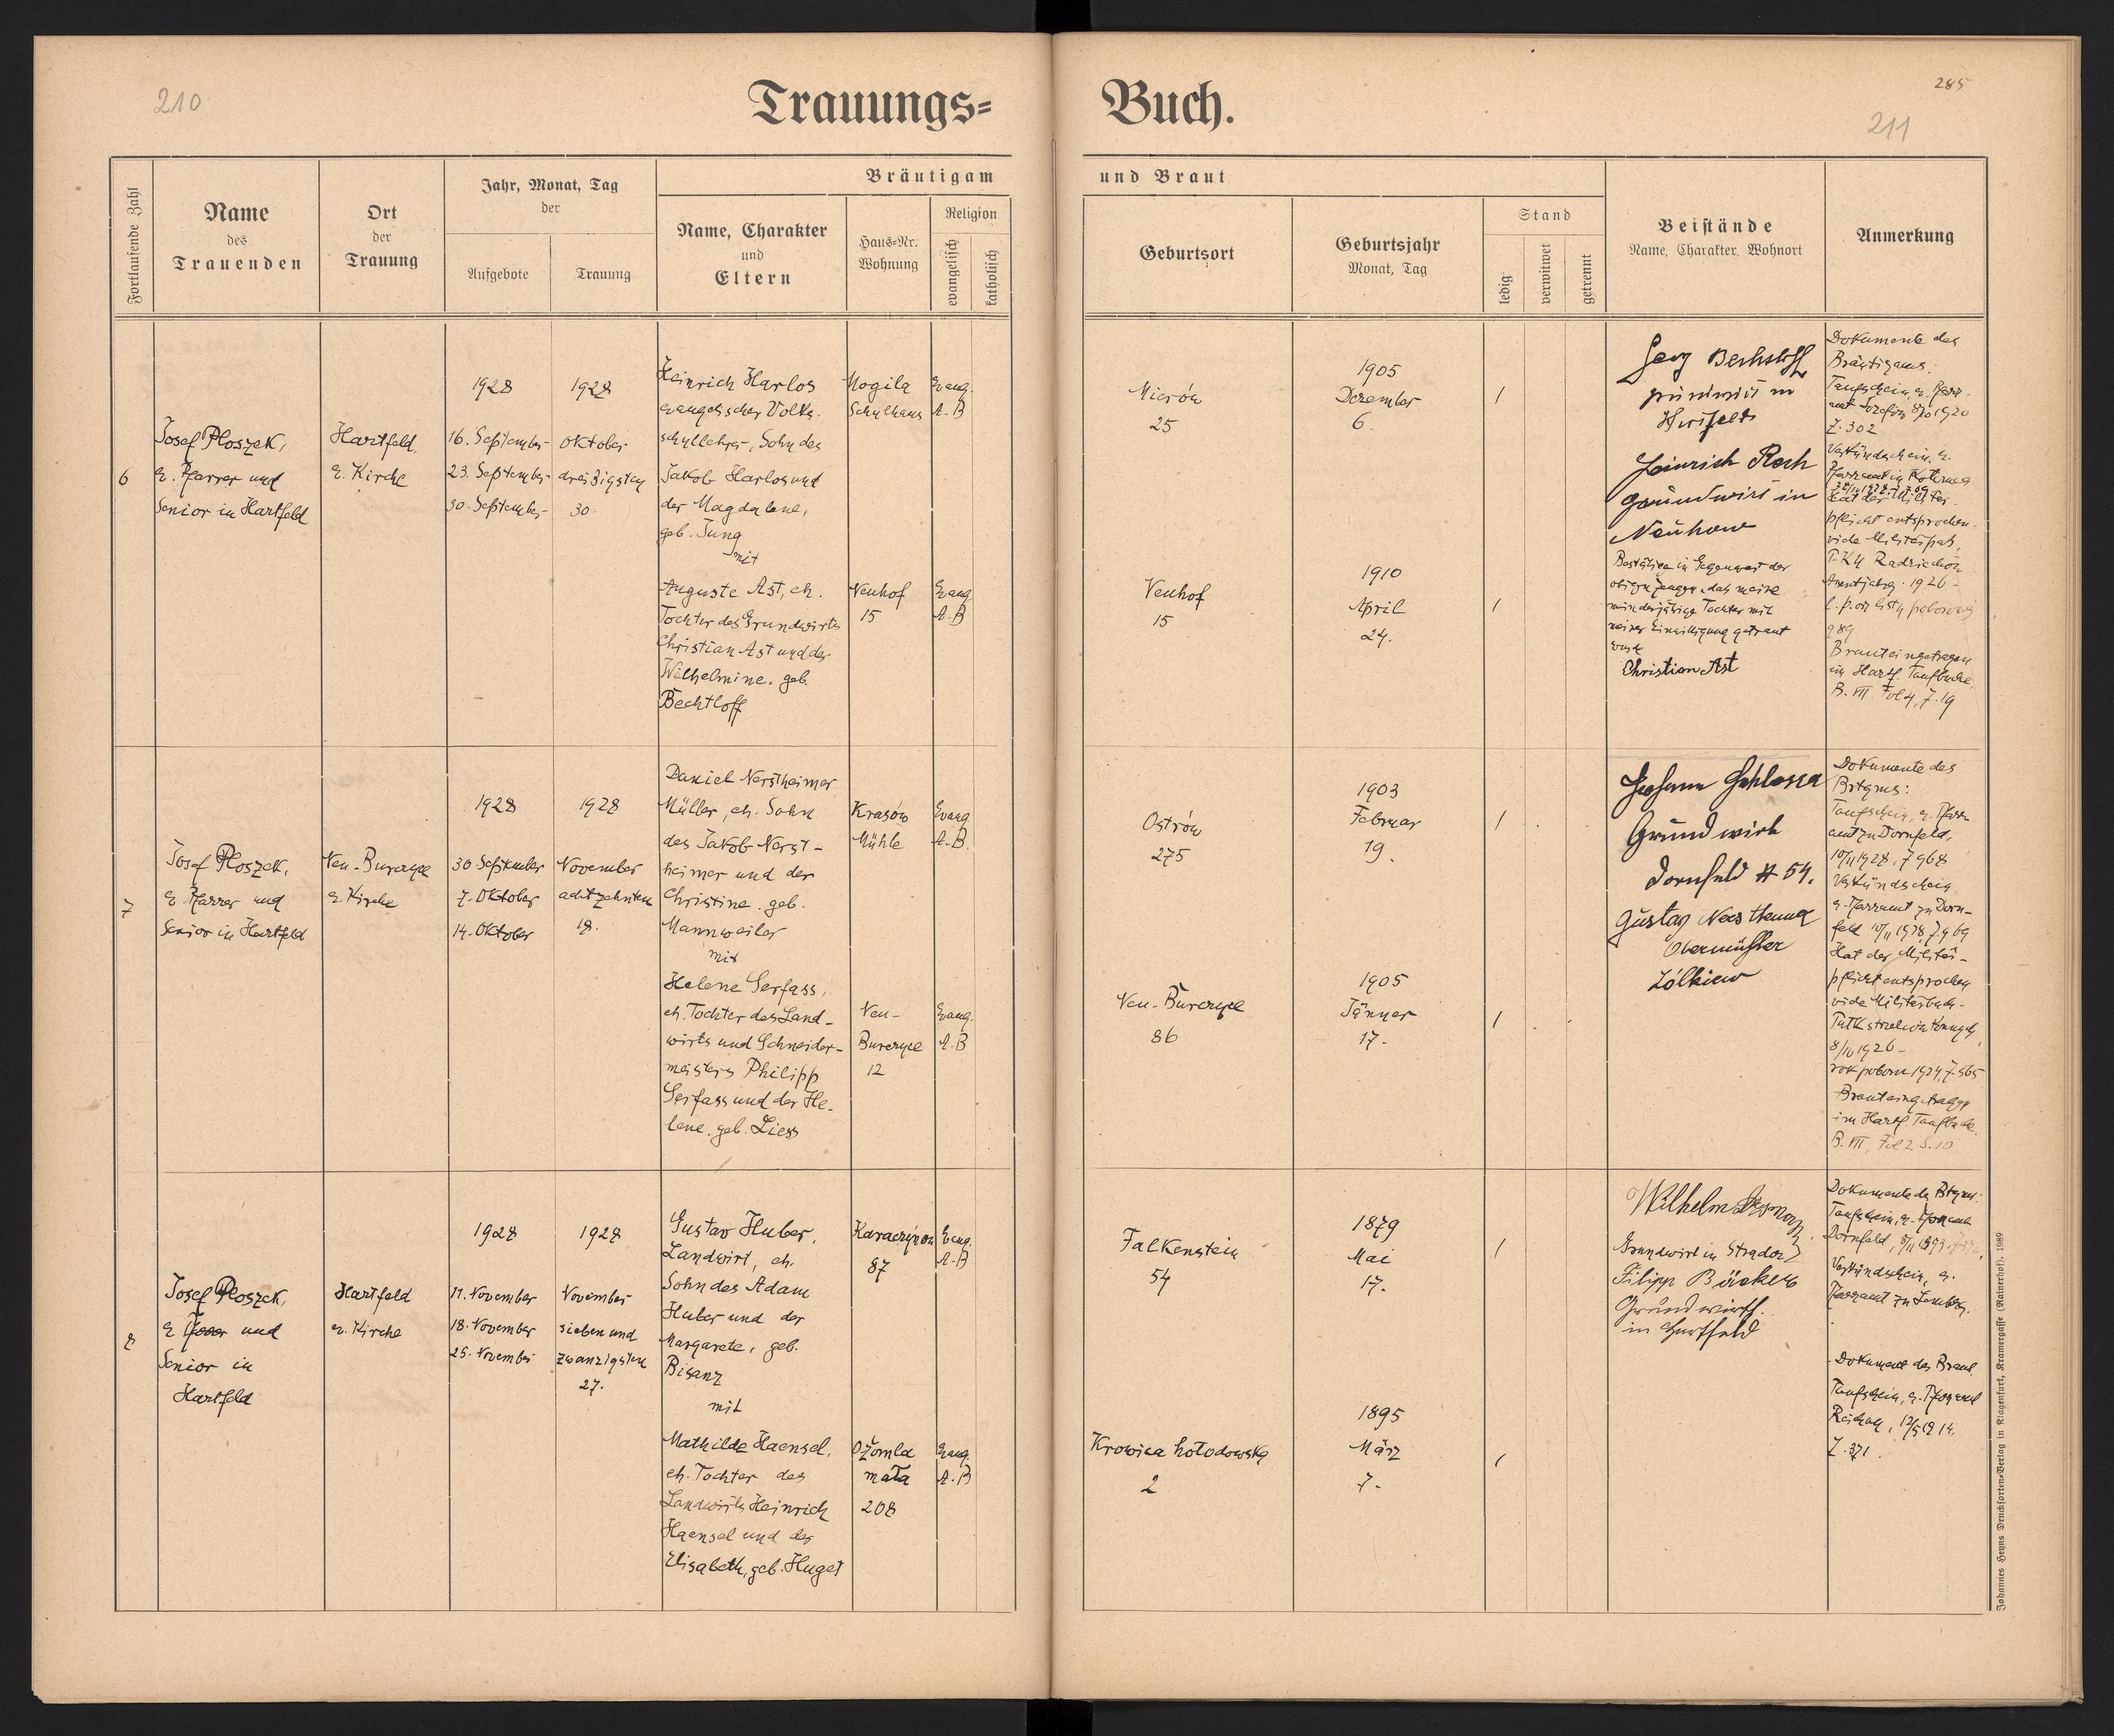 210
Trauungs=
Buch.
285
211
Fortlaufende Zahl
Name
des
Trauenden
Ort
der
Trauung
Jahr, Monat, Tag
der
Aufgebote
Trauung
Bräutigam
Name, Charakter
und
Eltern
Haus=Nr.
Wohnung
Religion
evangelisch
katholisch
und Braut
Geburtsort
Geburtsjahr
Monat, Tag
Stand
ledig
verwitwet
getrennt
Beistände
Name, Charakter, Wohnort
Anmerkung
6
Josef Ploszek,
e. Pfarrer und
Senior in Hartfeld
Hartfeld,
e. Kirche
1928
16. September
23. September
30. September
1928
Oktober
dreißigsten
30.
Heinrich Harlos
evangelischer Volks-
schullehrer, Sohn des
Jakob Harlos und
der Magdalene,
geb. Jung
mit
Auguste Ast, eh.
Tochter des Grundwirts
Christian Ast und der
Wilhelmine, geb.
Bechtloff
Mogila
Schulhaus
Evang.
A.B
Neuhof
15
Evang
A.B
Mierów
25
Neuhof
15
1905
Dezember
6.
1910
April
24.
/
/
Georg
in
Heinrich
Grundwirt in
Neuhow
Bestätige in Gegenwart der
obigen Zeugen, daß meine
minderjährige Tochter mit
meiner Einwilligung getraut
wurde
Christian Ast
Dokumente des
Bräutigams:
Taufschein, e. Pfarr-
amt Josefów 1920
Z. 302
Verkündschein, e.
Pfarramt in
Hat der Militär-
pflicht entsprochen
vide Militärpaß,
P.K.U
1926
Braut eingetragen
im Hartf. Taufbuche,
B. VII. Fol 4, Z. 19
7
Josef Ploszek,
e. Pfarrer und
Senior in Hartfeld
Neu-Burczyce
e. Kirche
1928
30. September
7. Oktober
14. Oktober
1928
November
achtzehnten
18.
Daniel Nerstheimer
Müller, eh. Sohn
des Jakob Nerst-
heimer und der
Christine, geb.
Mannweiler
mit
Helene Serfass,
eh. Tochter des Land-
wirts und Schneider-
meisters Philipp
Serfass und der He-
lene, geb. Liess
Krasów
Mühle
Evang
A.B.
Neu-
Burczyce
12
Evang.
A.B
Ostrów
275
Neu-Burczyce
86
1903
Februar
19.
1905
Jänner
17.
/
/
Johann Schlosser
Grundwirth
Dornfeld # 54.
Gustav Nerstheimer
Obermüller
Zólkiew
Dokumente des
Brtgms:
Taufschein, e. Pfarr-
amt zu Dornfeld,
10/11 1928, Z 968
Verkündschein,
e. Pfarramt zu Dorn-
feld 10/11 1928, Z 969
Hat der Militär-
pflicht entsprochen
vide Militärbuch-
8/10 1926-
rok poboru 1924, Z. 565
Braut eingetragen
im Hartf. Taufbuche
B. VII, Fol 2 S. 10
8
Josef Ploszek,
e. Pfarrer und
Senior in
Hartfeld
Hartfeld
e. Kirche
1928
11. November
18. November
25. November
1928
November
sieben und
zwanzigsten
27.
Gustav Huber,
Landwirt, eh.
Sohn des Adam
Huber und der
Margarete, geb.
Bisanz
mit
Mathilde Haensel,
eh. Tochter des
Landwirts Heinrich
Haensel und der
Elisabeth, geb. Huget
Karaczynow
87
Evang.
A.B
Ożomla
mała
208
Evang.
A.B
Falkenstein
54
Krowica hołodowska
2
1879
Mai
17.
1895
März
7.
/
/
Wilhelm
Grundwirt in
Filipp Bäcker
Grundwirth
in Hartfeld
Dokumente des Brtgms:
Taufschein, e. Pfarramt
Dornfeld,
Verkündschein, e.
Pfarramt zu Lemberg.
Dokument der Braut
Taufschein, e. Pfarramt
Reichau, 12/5 1914,
Z. 371.
Johannes Heyns Drucksorten=Verlag in Klagenfurt, Kramergasse (Rainerhof). 1989